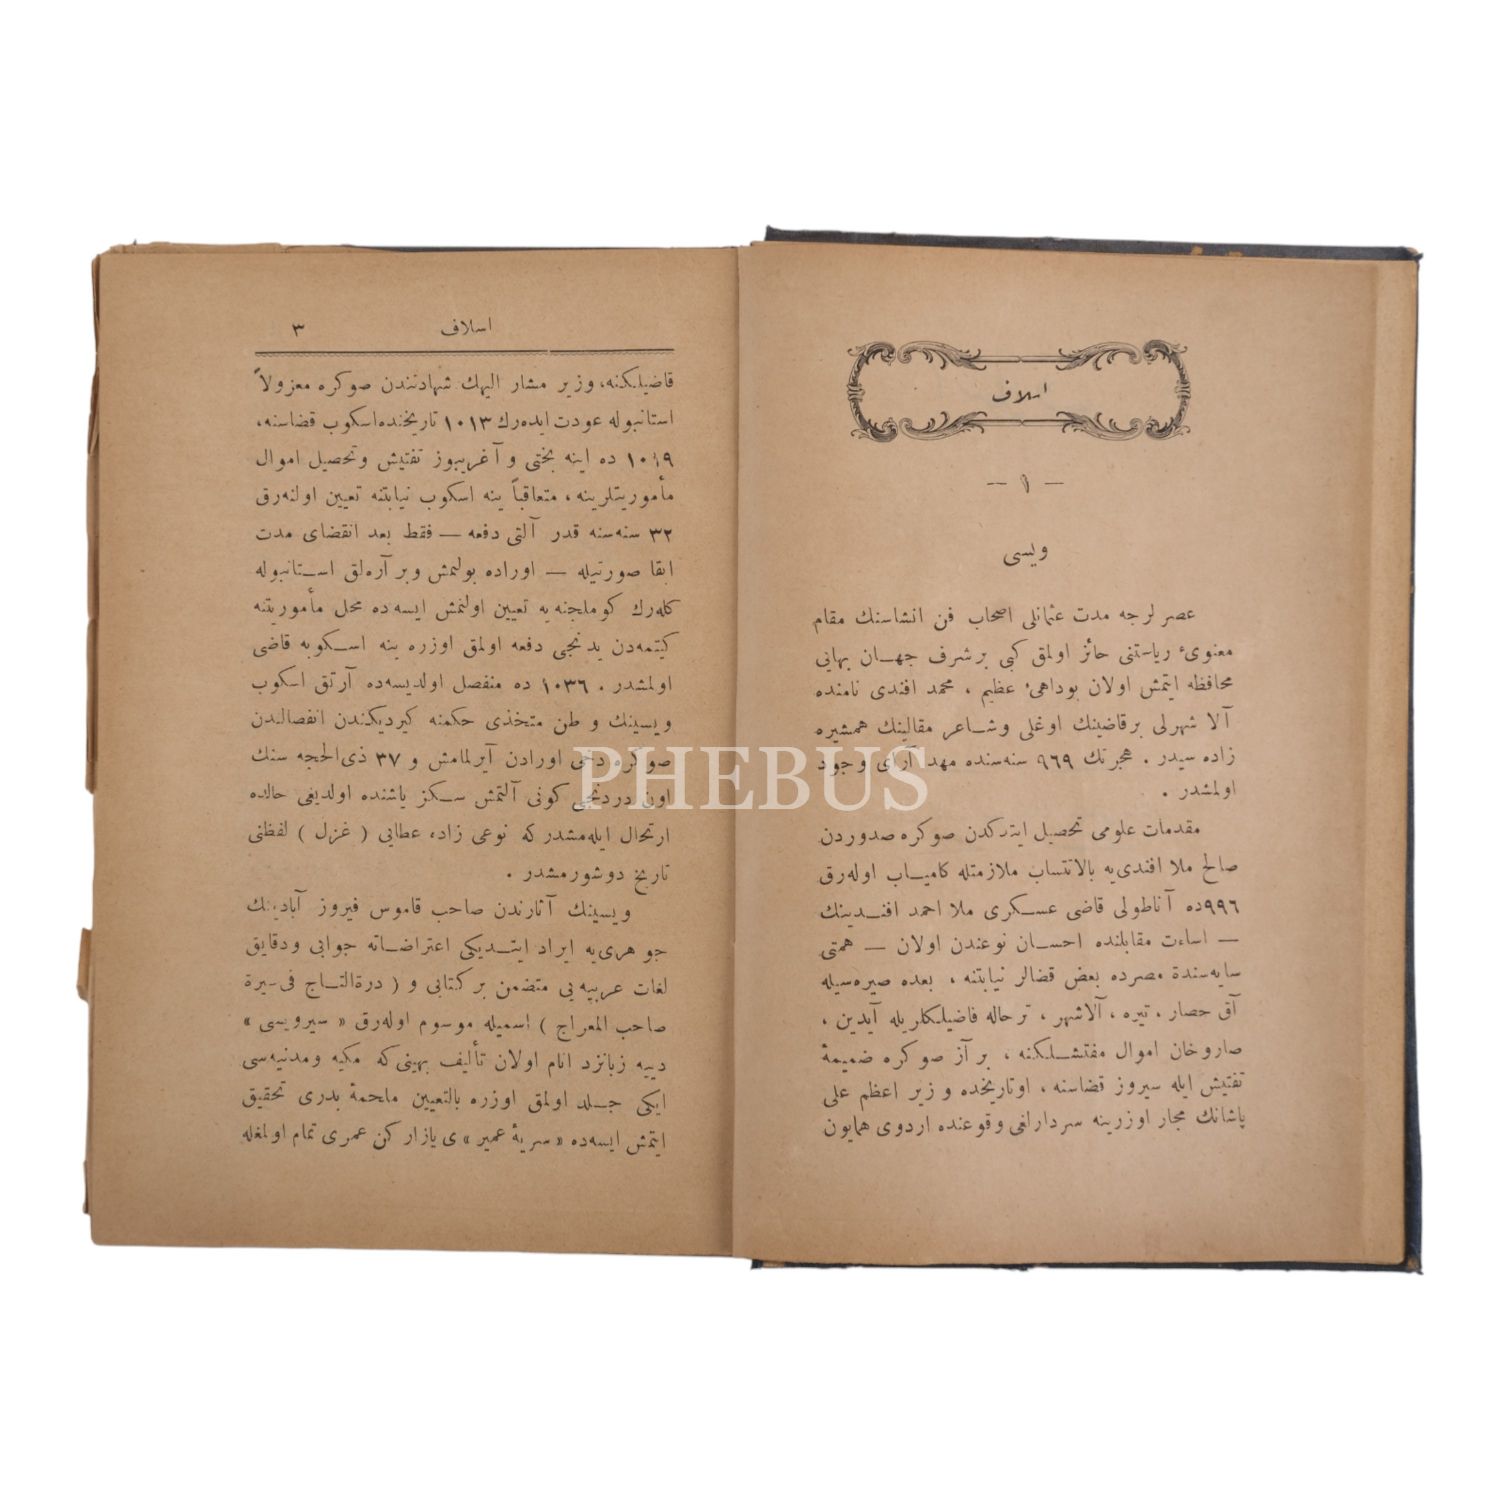 اسلاف
— ١ —
ویسی
عصر لرجه مدت عثمانلی اصحاب فن انشاسنك مقام
معنویٴ ریاستنی حائز اولمق كبی بر شرف جهـان بهایی
محافظه ایتمش اولان بوداهیٴ عظیم ، محمد افندی نامنده
آلا شهرلی برقاضینك اوغلی و شـاعر مقالینك همشیره
زاده سیدر . هجرتك ٩٦٩ سنه‌سنده مهد آرای وجود
اولمشدر .
مقدمات علومی تحصیل ایتدكدن صوكره صدوردن
صالح ملا افندی‌یه بالانتساب ملازمتله كامیـاب اوله‌رق
٩٩٦ده آناطولی قاضی عسـكری ملا احمد افنـدینك
— اساءت مقابلنده احسـان نوعندن اولان — همتی
سایه‌سندة مصرده بعض قضالر نیابتنه ، بعده صیره‌سیله
آق حصار ، تیره ، آلاشهر ، ترحاله قاضیلكلریله آیدین ،
صاروخان اموال مفتشـلكنه ، بر آز صوكره ضمیمهٔ
تفتیش ایله سیروز قضاسنه ، اوتاریخده و زیر اعظم علی
پاشانك مجار اوزرینه سردارلغی وقوعنده اردوی همایون
اسلاف ٣
قاضیلكنه، وزیر مشار الیهك شهادتندن صوكره معزولاً
استانبوله عودت ایده‌رك ١٠١٣ تاریخنده‌اسكوب قضاسنه،
١٠١٩ ده اینه بختی و آغریبوز تفتیش وتحصیل اموال
مأموریتلرینه ، متعاقباً ینه اسكوب نیابتنه تعیین اولنه‌رق
٣٢ سنه‌سنه قدر آلتی دفعه — فقط بعد انقضای مدت
ابقا صورتیله — اوراده بولنمش وبر آره‌لق اسـتانبوله
كله‌رك كوملجنه یه تعیین اولنمش ایسه‌ده محل مأموریتنه
كیتمه‌دن یدنجی دفعه اولمق اوزره ینه اسـكوبه قاضی
اولمشدر . ١٠٣٦ ده منفصل اولدیسه‌ده آرتق اسكوب
ویسینك و طن متخذی حكمنه كیردیكندن انفصالـندن
صوكره دخی اورادن آیرلمامش و ٣٧ ذی‌الحجه سنك
اون دردنجی كونی آلتمش سـكز یاشنده اولدیغی حالده
ارتحال ایله‌مشدر كه نوعی زاده عطایی ( غزل ) لفظنی
تاریخ دوشورمشدر .
ویسینك آثارندن صاحب قاموس فیروز آبادینك
جوهری‌یه ایراد ایتـدیكی اعتراضـاته جوابی ودقایق
لغات عربیه یی متضمن بر كتابی و ( درةالتـاج فی‌سیرة
صاحب المعراج ) اسمیله موسوم اوله‌رق « سیرویسی »
دییه زبانزد انام اولان تألیف بهینی كه مكیه ومدنیه‌سی
ایكی جـلد اولمق اوزره بالتعیین ملحمهٔ بدری تحقیق
ایتمش ایسه‌ده « سریهٔ عمیر » ی یازاركن عمری تمام اولمغله
PHEBUS